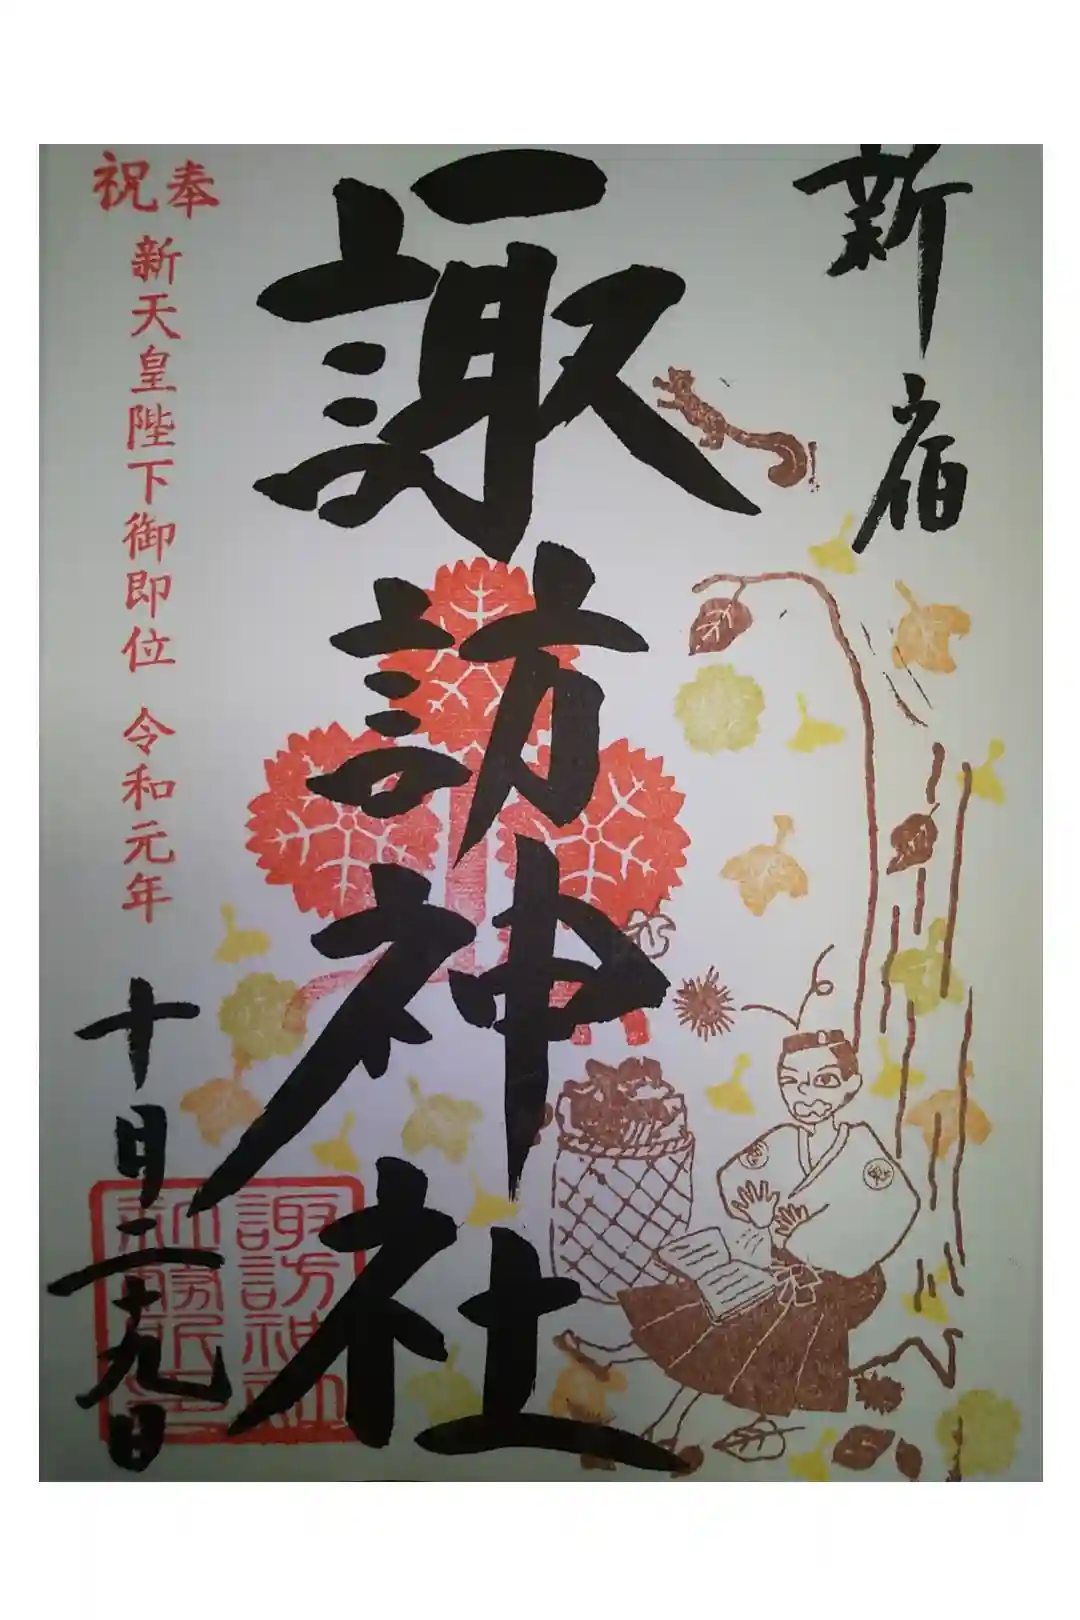 新宿
諏訪神社
奉祝
新天皇陛下御即位 令和元年
十月二十九日
諏訪神社